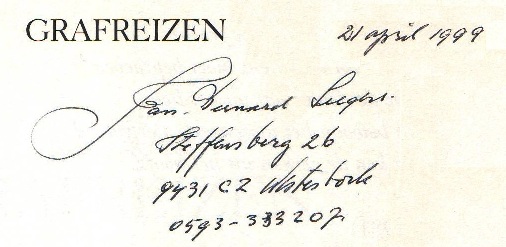 GRAFREIZEN
21 april 1999
Jan. Bernard Seegers.
Steffensberg 26
9431 CZ Westerbork
0593-333207